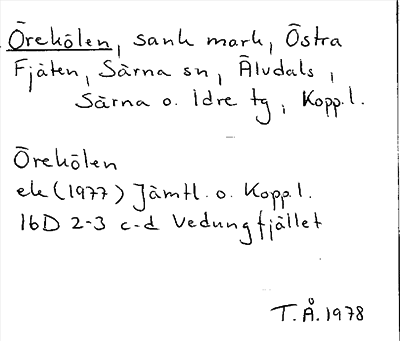 Örekölen, sank mark, Östra
Fjäten, Särna sn, Älvdals,
Särna o. Idre tg, Koppl.
Örekölen
ek (1977) Jämtl. o. Koppl.
16D 2-3 c-d Vedungfjället
T.Å. 1978